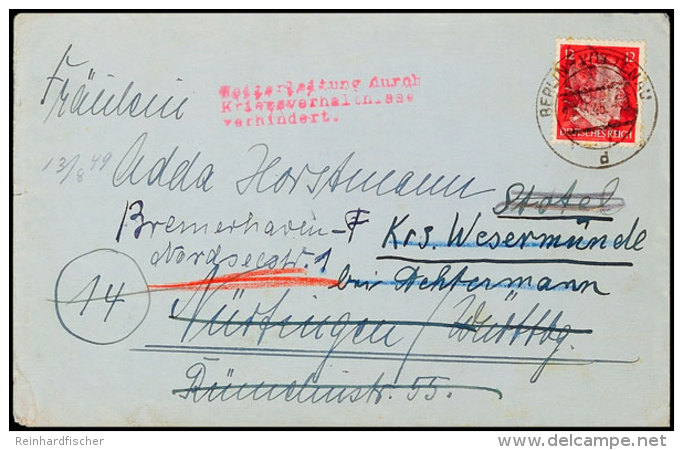 Fräulein
Weiterleitung durch
Kriegsverhältnisse
verhindert.
12 12
DEUTSCHES REICH
BERLIN
d
13/8 49
Adda Horstmann
Stotel
Bremerhaven-F
Krs. Wesermünde
Nordseestr. 1
bei Dehtermann
14
Nürtingen / Württbg.
Rümelinstr. 55.
Reinhardfischer
www.delcampe.net